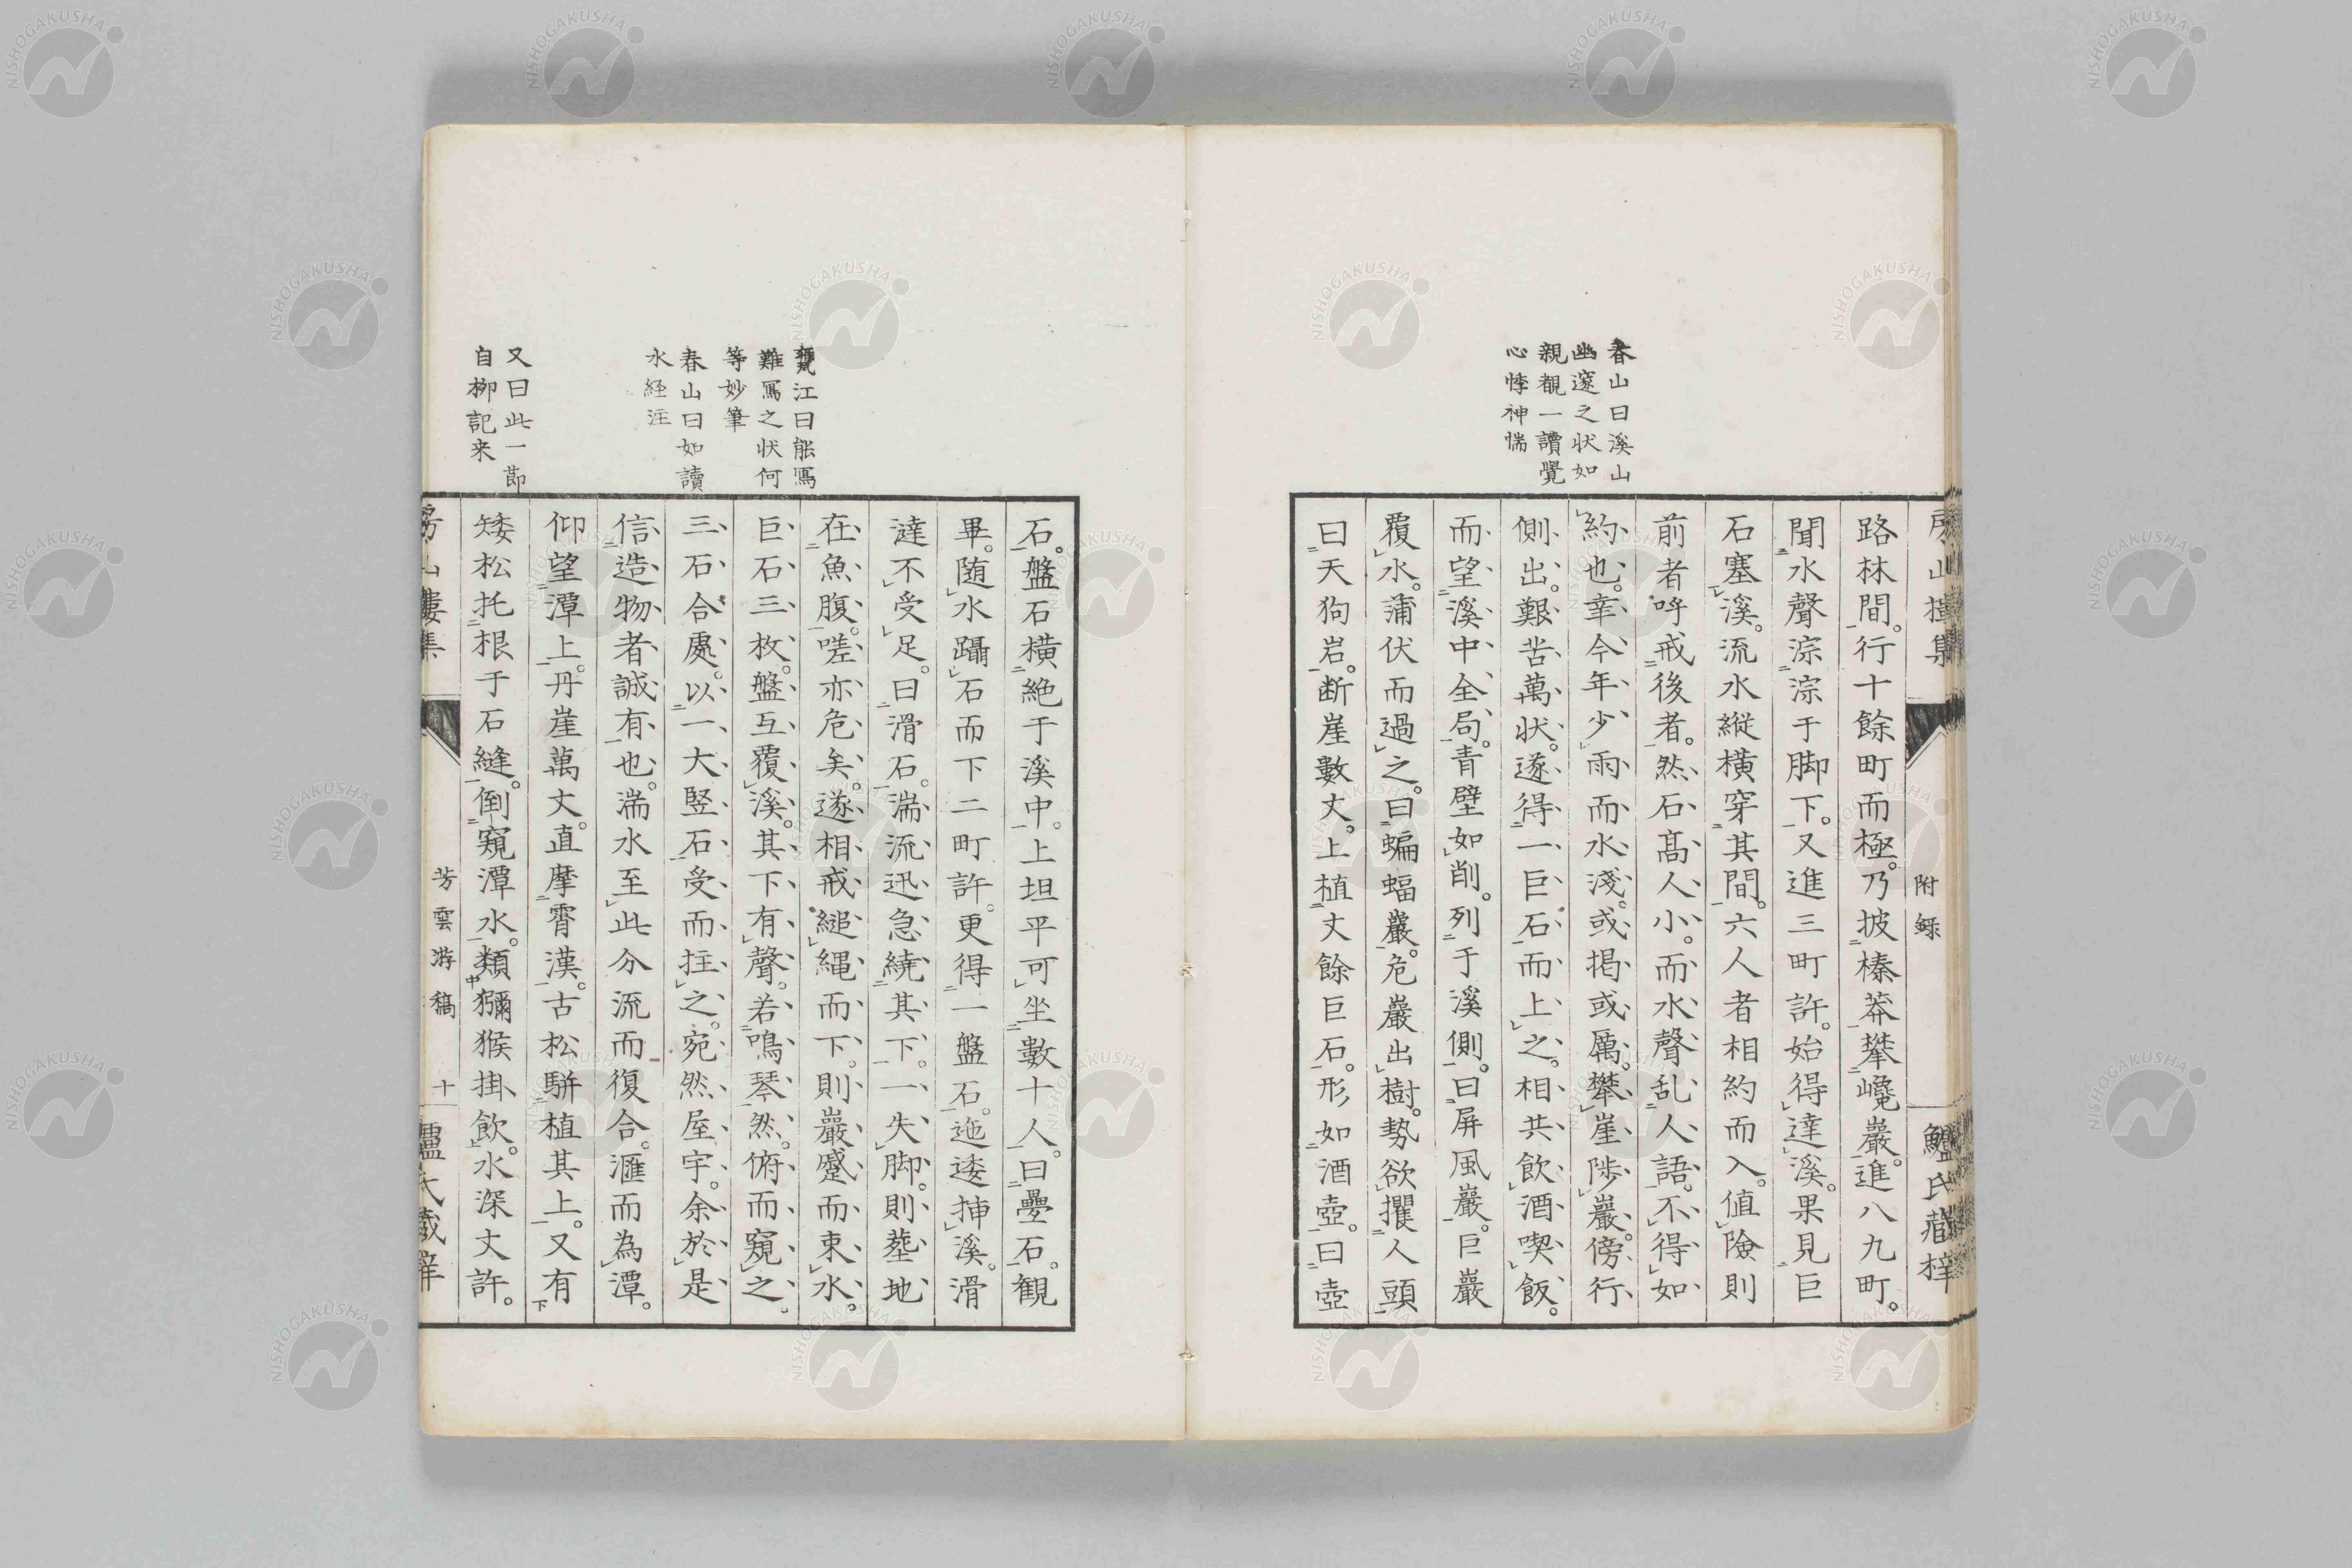 春山曰溪山
幽邃之状如
親覩一讀覺
心悸神惴
附録
氏蔵梓
路林間。行十餘町而極。乃披榛莽攀巉巖。進八九町。
聞水聲淙淙于脚下。又進三町許。始得達溪。果見巨
石塞溪。流水縱横穿其間。六人者相約而入。値險則
前者呼戒後者。然石髙人小。而水聲乱人語。不得如
約也。幸今年少雨而水淺。或掲或厲。攀崖陟巖。傍行
側出。艱苦萬状。遂得一巨石而上之。相共飲酒喫飯。
而望溪中全局。青壁如削。列于溪側。曰屏風巖。巨巖
覆水。蒲伏而過之。曰蝙蝠巖。危巖出樹。勢欲攫人頭
曰天狗岩。断崖數丈。上植丈餘巨石。形如酒壺。曰壺
甕江曰能寫
難寫之状何
等妙筆
春山曰如讀
水経注
又曰此一節
自柳記来
石。盤石横絶于溪中。上坦平可坐數十人。曰疊石。観
畢。随水躡石而下二町許。更得一盤石。迤逶挿溪。滑
澾不受足。曰滑石。湍流迅急繞其下。一失脚。則葬地
在魚腹。嗟亦危矣。遂相戒縋縄而下。則巖蹙而束水。
巨石三枚。盤互覆溪。其下有聲。若鳴琴然。俯而窺之。
三石合處。以一大竪石受而拄之。宛然屋宇。余於是
信造物者誠有也。湍水至此分流而復合。滙而為潭。
仰望潭上。丹崖萬丈。直摩霄漢。古松駢植其上。又有
矮松托根于石縫。倒窺潭水。類獼猴掛飲。水深丈許。
芳雲游稿
十